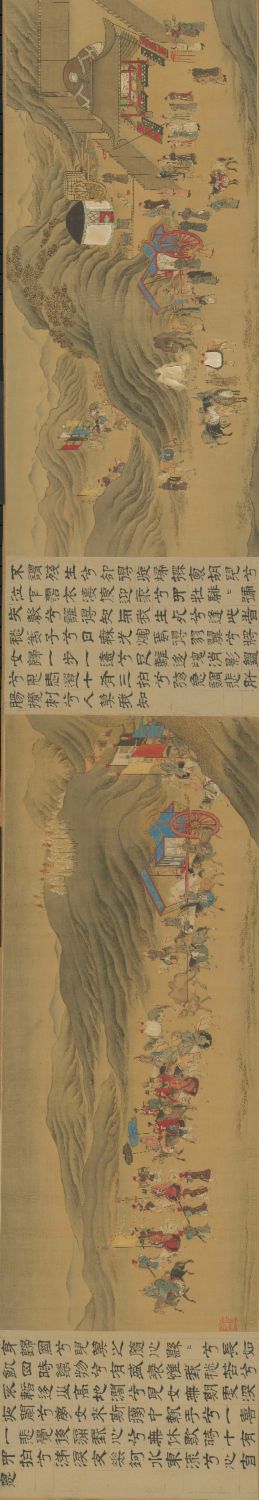 不謂殘生兮却得旋歸撫抱胡兒兮
泣下沾衣漢使迎我兮四牡騑騑號
失聲兮誰得知與我生死兮逢此時
愁為子兮日無光輝焉得羽翼兮將汝
歸一步一遠兮足難移魂消影絶兮恩愛
遺十有三拍兮絃急調悲肝
腸攪刺兮人莫我知
身歸國兮兒莫之隨心懸懸兮長如
飢四時萬物兮有盛衰惟我愁苦兮
不暫移山高地濶兮見汝無期更深
夜闌兮夢汝來斯夢中執手兮一喜
一悲覺後痛我心兮無休歇時十有
四拍兮涕淚交垂河水東流兮自
是思